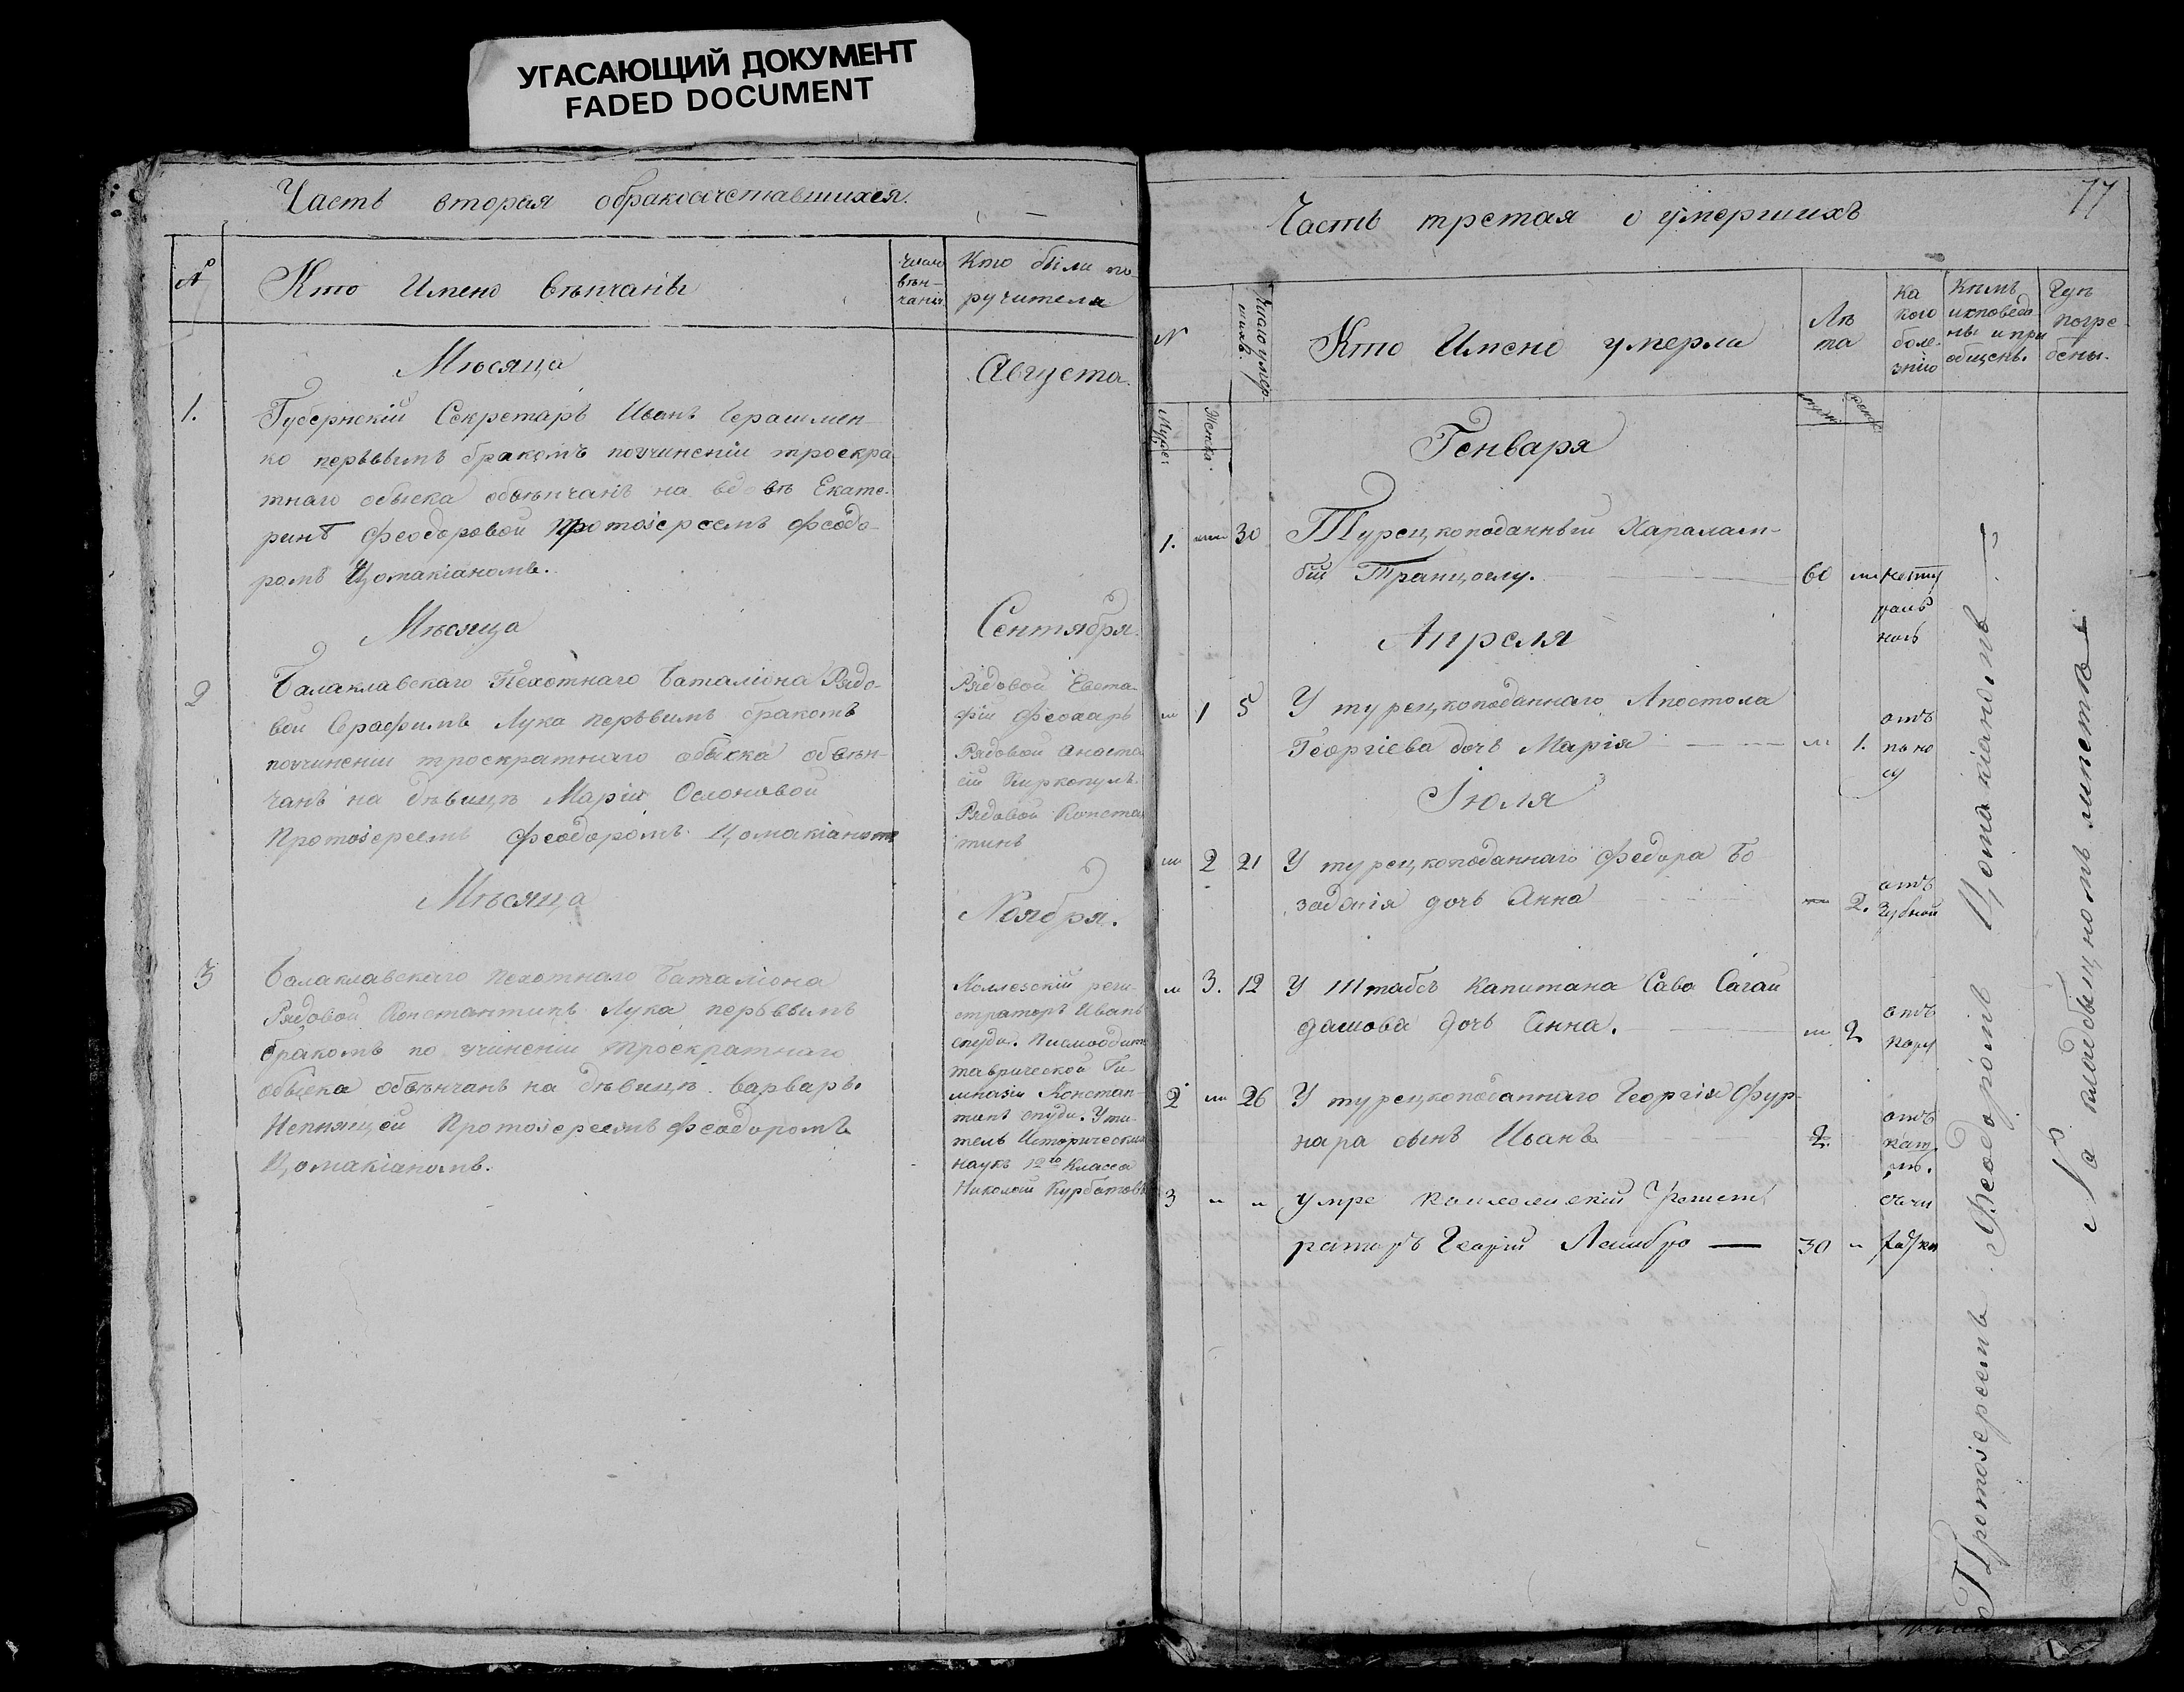 УГАСАЮЩИЙ ДОКУМЕНТ
FADED DOCUMENT
Часть вторая обракосочетавшихся.
№
Кто Имено Венчаны
число
вѣн-
чанія
Кто были по-
ручители
Мѣсяца
Августа.
1.
Губернскій Секретарь Иванъ
ко первымъ бракомъ поучиненіи троекра
тнаго обыска обвѣнчанъ на вдовѣ Екате-
ринѣ Феодоровой протоіереемъ Феодо-
ромъ Цомакіаномъ.
Мѣсяца
Сентября.
2
Балаклавскаго Пехотнаго Баталіона Рядо-
вой Серафимъ Лука первымъ бракомъ
поучинении троекратнаго обыска обвѣн-
чанъ на дѣвицѣ Маріи
Протоіереемъ Феодоромъ Цомакіаномъ
Рядовой Евста-
фій Феохарь
Рядовой Анаста
сій
Рядовой Конста
тинъ
Мѣсяца
Ноября.
3
Балаклавскаго пехотнаго Баталіона
Рядовой Константинъ Лука первымъ
бракомъ по учиненіи троекратнаго
обыска обвѣнчанъ на дѣвицѣ Варваръ
Протоіереемъ Феодоромъ
Цомакіаномъ.
Коллезскій реги-
страторъ Иванъ
Спуди.
таврической Ги-
мназіи Констан-
тинъ Спуди. Учи-
тель Исторический
наукъ 12го Класса
Николай Курбатовъ
77
Часть третая о умершихъ
N
Число умер-
шихъ
Кто Имено умерли
Лѣ
та
Ка
кою
боле-
знію
Кѣмъ
исповеда
ны и при
общены.
Гдѣ
погре-
бены.
Мужес
Женск.
Генваря
1. 30 Турецкоподанный Харалам-
бій 60
Апреля
1 5 У турецкоподаннаго Апостола
Георгіева дочь Марія 1.
отъ
поно
су
Іюля
2 21 У турецкоподаннаго Федора Бо
дочь Анна 2.
отъ
Зубной
3. 12 У Штабсъ Капитана Саво Саган
дашова дочь Анна. 2
отъ
2 26 У турецкоподаннаго Георгія Фур-
нара сынъ Иванъ 2.
отъ
3 умре Коллежскій Регист
раторъ Георгій Ламбро — 30
Протоіереемъ Феодоромъ Цомакіаномъ —
На кладбищномъ мистѣ